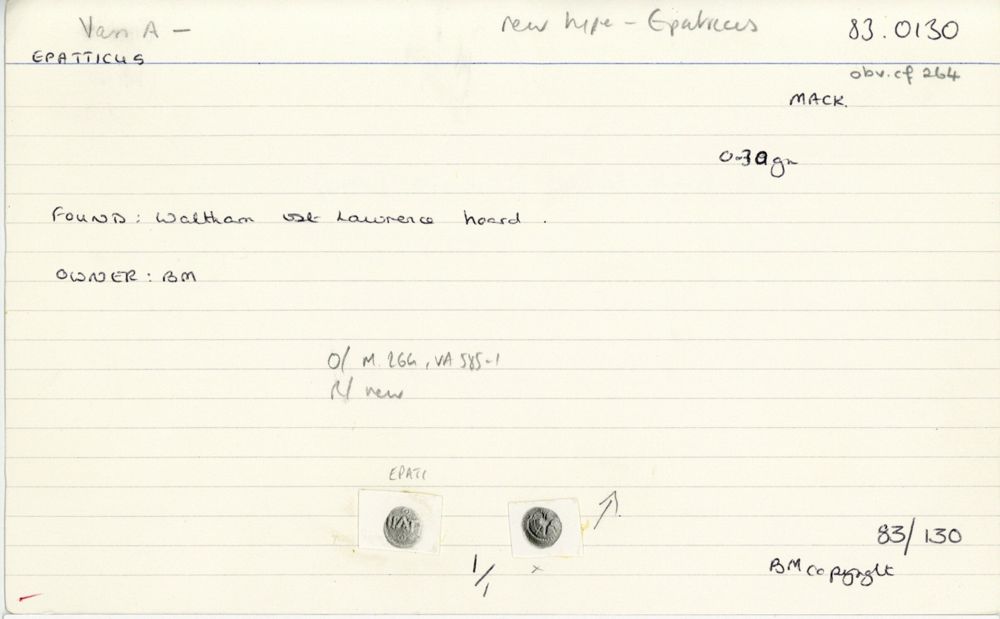 Van A - new type - Epaticcus 83.0130
EPATTICUS
obv. cf 264
MACK.
0.30gm
FOUND: Waltham St Lawrence hoard.
OWNER: BM
O/ M.264, VA 585-1
R/ new
EPATI
1/1 x
83/130
BM copyright